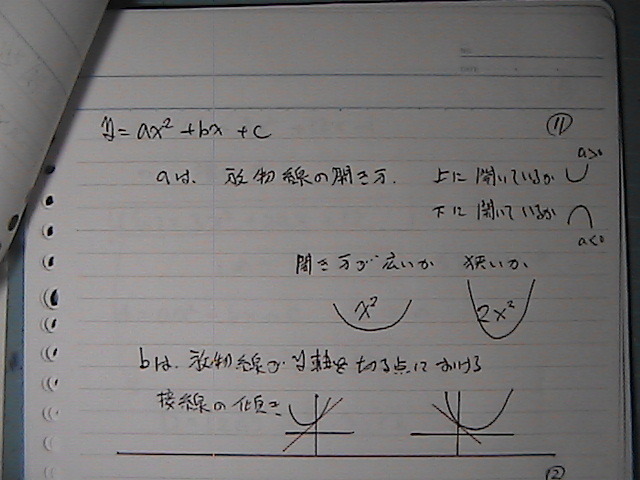 y=ax²+bx+c ⑪
aは、放物線の開き方. 上に開いているか a>0
下に開いているか a<0
開き方が広いか 狭いか
x² 2x²
bは、放物線がy軸を切る点における
接線の傾き
②